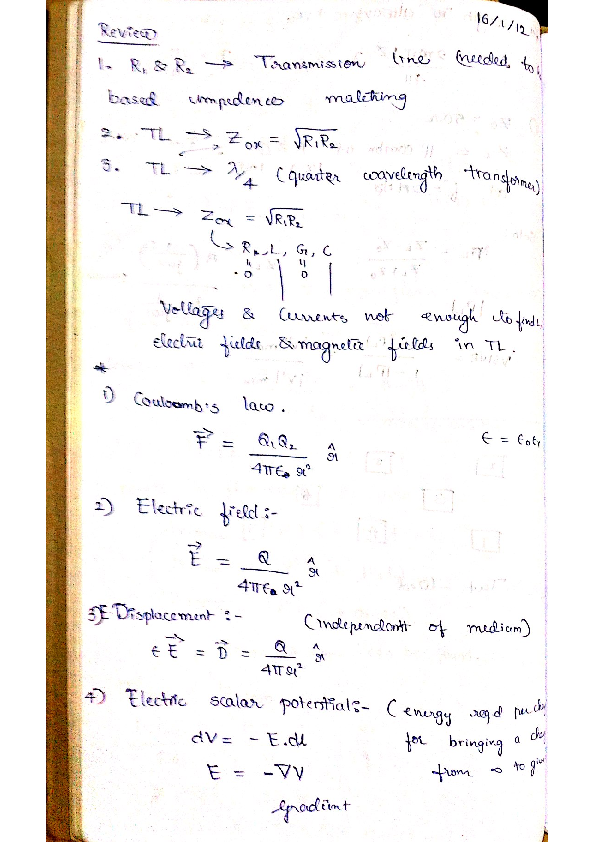 16/1/12
Review
1. R₁ & R₂ → Transmission line (needed to
based impedence matching
2. TL → Zox = √R₁R₂
3. TL → λ/4 (quarter wavelength transformer)
TL → Zox = √R₁R₂
↳ R, L, G, C
= 0 = 0
Voltages & Currents not enough to find
electric fields & magnetic fields in TL.
*
1) Coulomb's law.
F⃗ = Q₁Q₂ / 4πε r² r̂ ε = ε₀εr
2) Electric field :-
E⃗ = Q / 4πε r² r̂
3) E Displacement :- (independent of medium)
ε E⃗ = D⃗ = Q / 4πr² r̂
4) Electric scalar potential :- (energy reqd per
dV = - E.dl for bringing a
E = -∇V from ∞ to
Gradient